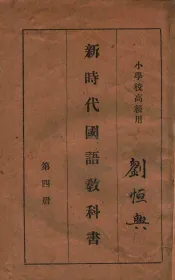 小學校高級用
劉恒典
新時代國語敎科書
第四册